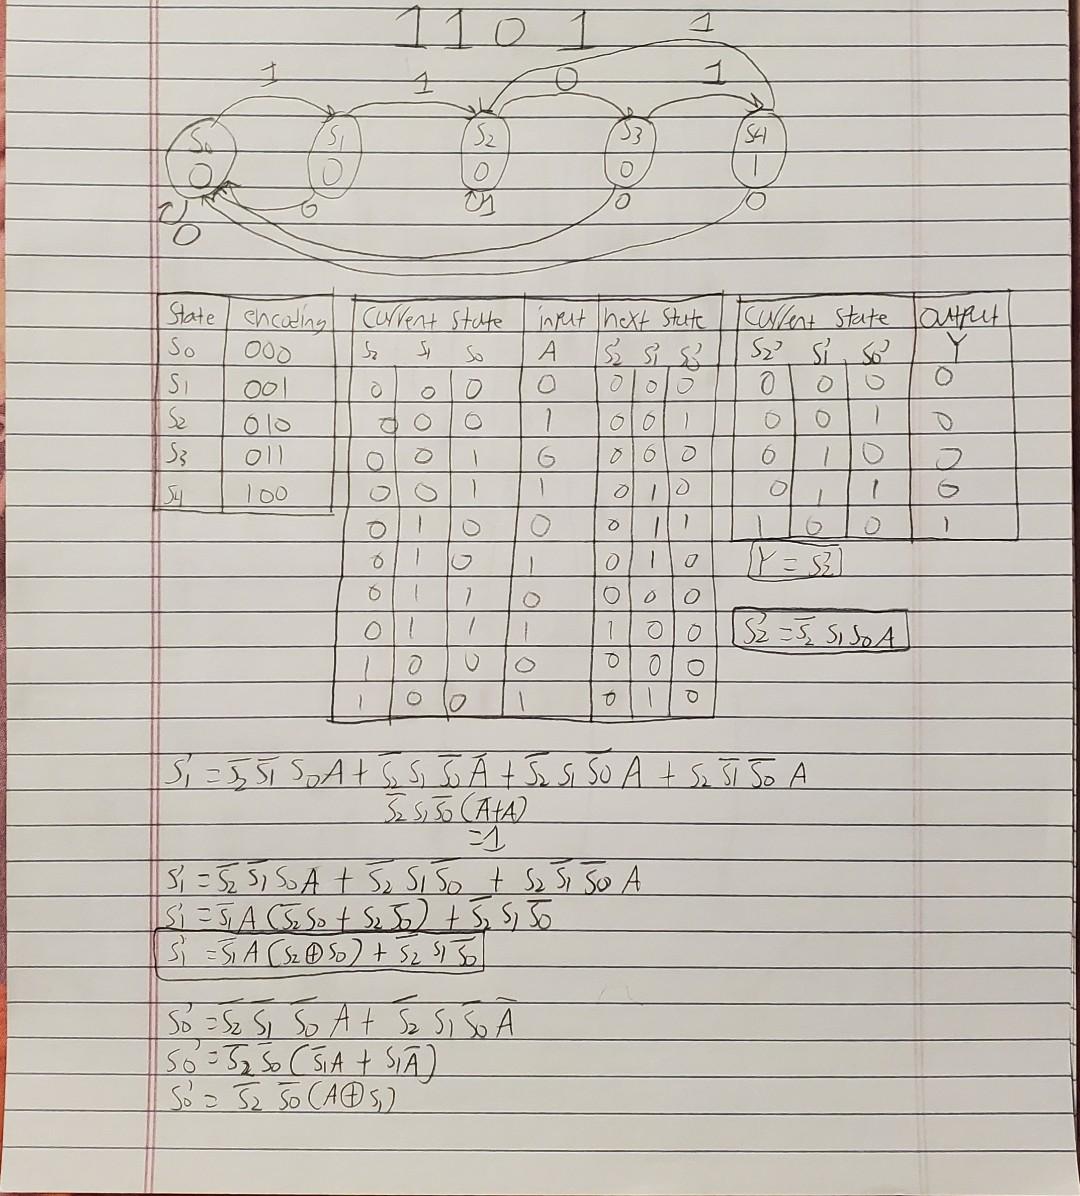 1 1 0 1
1
1 1 0 1
S0 S1 S2 S3 S4
0 0 0 0 1
0 0 1 0 0
State encoding
S0 000
S1 001
S2 010
S3 011
S4 100
Current State input next state
S2 S1 S0 A S2' S1' S0'
0 0 0 0 0 0 0
0 0 0 1 0 0 1
0 0 1 0 0 0 0
0 0 1 1 0 1 0
0 1 0 0 0 1 1
0 1 0 1 0 1 0
0 1 1 0 0 0 0
0 1 1 1 1 0 0
1 0 0 0 0 0 0
1 0 0 1 0 1 0
Current State Output
S2' S1' S0' Y
0 0 0 0
0 0 1 0
0 1 0 0
0 1 1 0
1 0 0 1
Y = S2'
S2' = S̅2 S1 S0 A
S1' = S̅2 S̅1 S0 A + S̅2 S1 S̅0 A̅ + S̅2 S1 S̅0 A + S2 S̅1 S̅0 A
S̅2 S1 S̅0 (A̅+A)
=1
S1' = S̅2 S̅1 S0 A + S̅2 S1 S̅0 + S2 S̅1 S̅0 A
S1' = S̅1 A (S̅2 S0 + S2 S̅0) + S̅2 S1 S̅0
S1' = S̅1 A (S2 ⊕ S0) + S̅2 S1 S̅0
S0' = S̅2 S̅1 S̅0 A + S̅2 S1 S̅0 A̅
S0' = S̅2 S̅0 (S̅1 A + S1 A̅)
S0' = S̅2 S̅0 (A ⊕ S1)